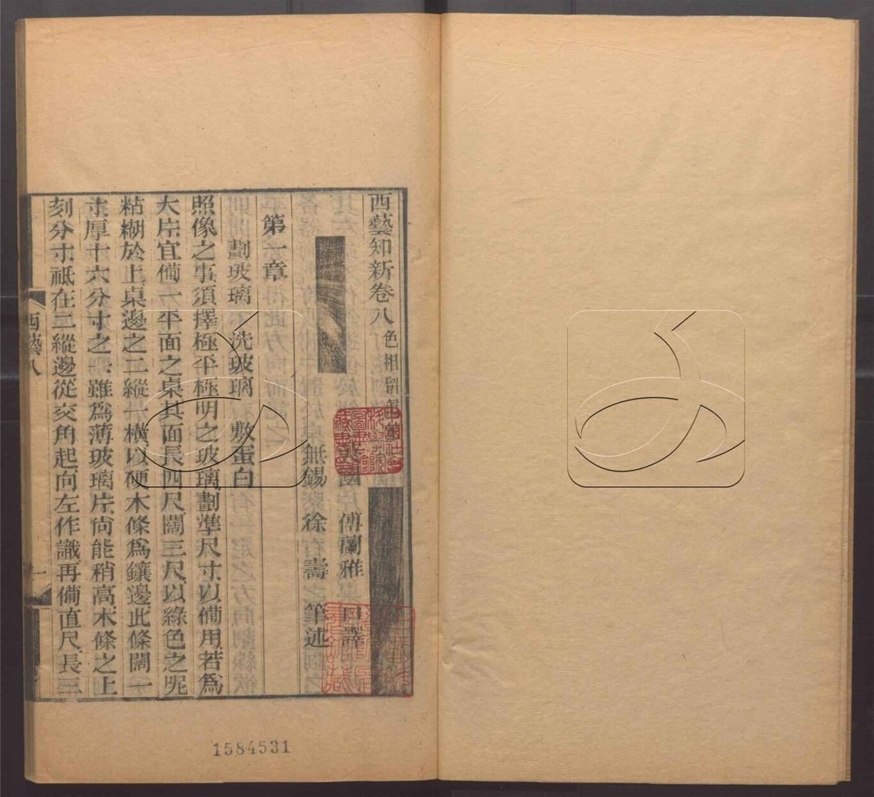 西藝知新卷八色相留眞
英國 傅蘭雅 口譯
無錫 徐 壽 筆述
第一章
劃玻璃 洗玻璃 敷蛋白
照像之事須擇極平極明之玻璃劃準尺寸以備用若爲
大片宜備一平面之桌其面長四尺闊三尺以綠色之呢
粘糊於上桌邊之二縱一橫以硬木條爲鑲邊此條闊一
寸厚十六分寸之 雖爲薄玻璃片尙能稍高木條之上
刻分寸祗在二縱邊從交角起向左作識再備直尺長三
西藝八
一
1584531